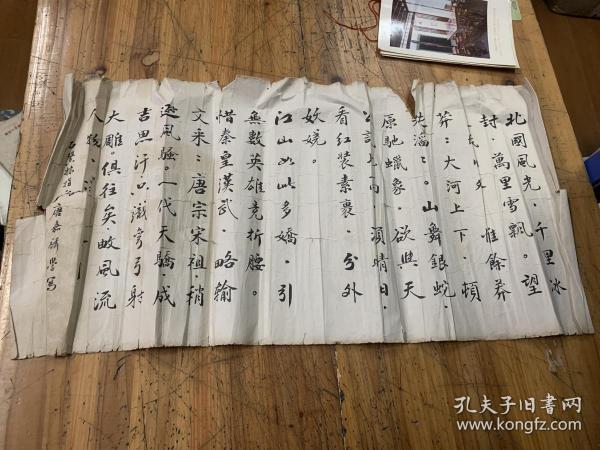 北國風光，千里冰
封，萬里雪飄。望
惟餘莽
莽；大河上下，頓
失滔：。山舞銀蛇，
原馳蠟象，欲與天
公試比高。須晴日，
看紅裝素裹，分外
妖嬈。
江山如此多嬌，引
無數英雄竞折腰。
惜秦皇漢武，略輸
文采；唐宗宋祖，稍
遜風騷。一代天驕，成
吉思汗，只識彎弓射
大雕。俱往矣，數風流
人物，
唐嘉 學寫
孔夫子旧書网
www.kongfz.com